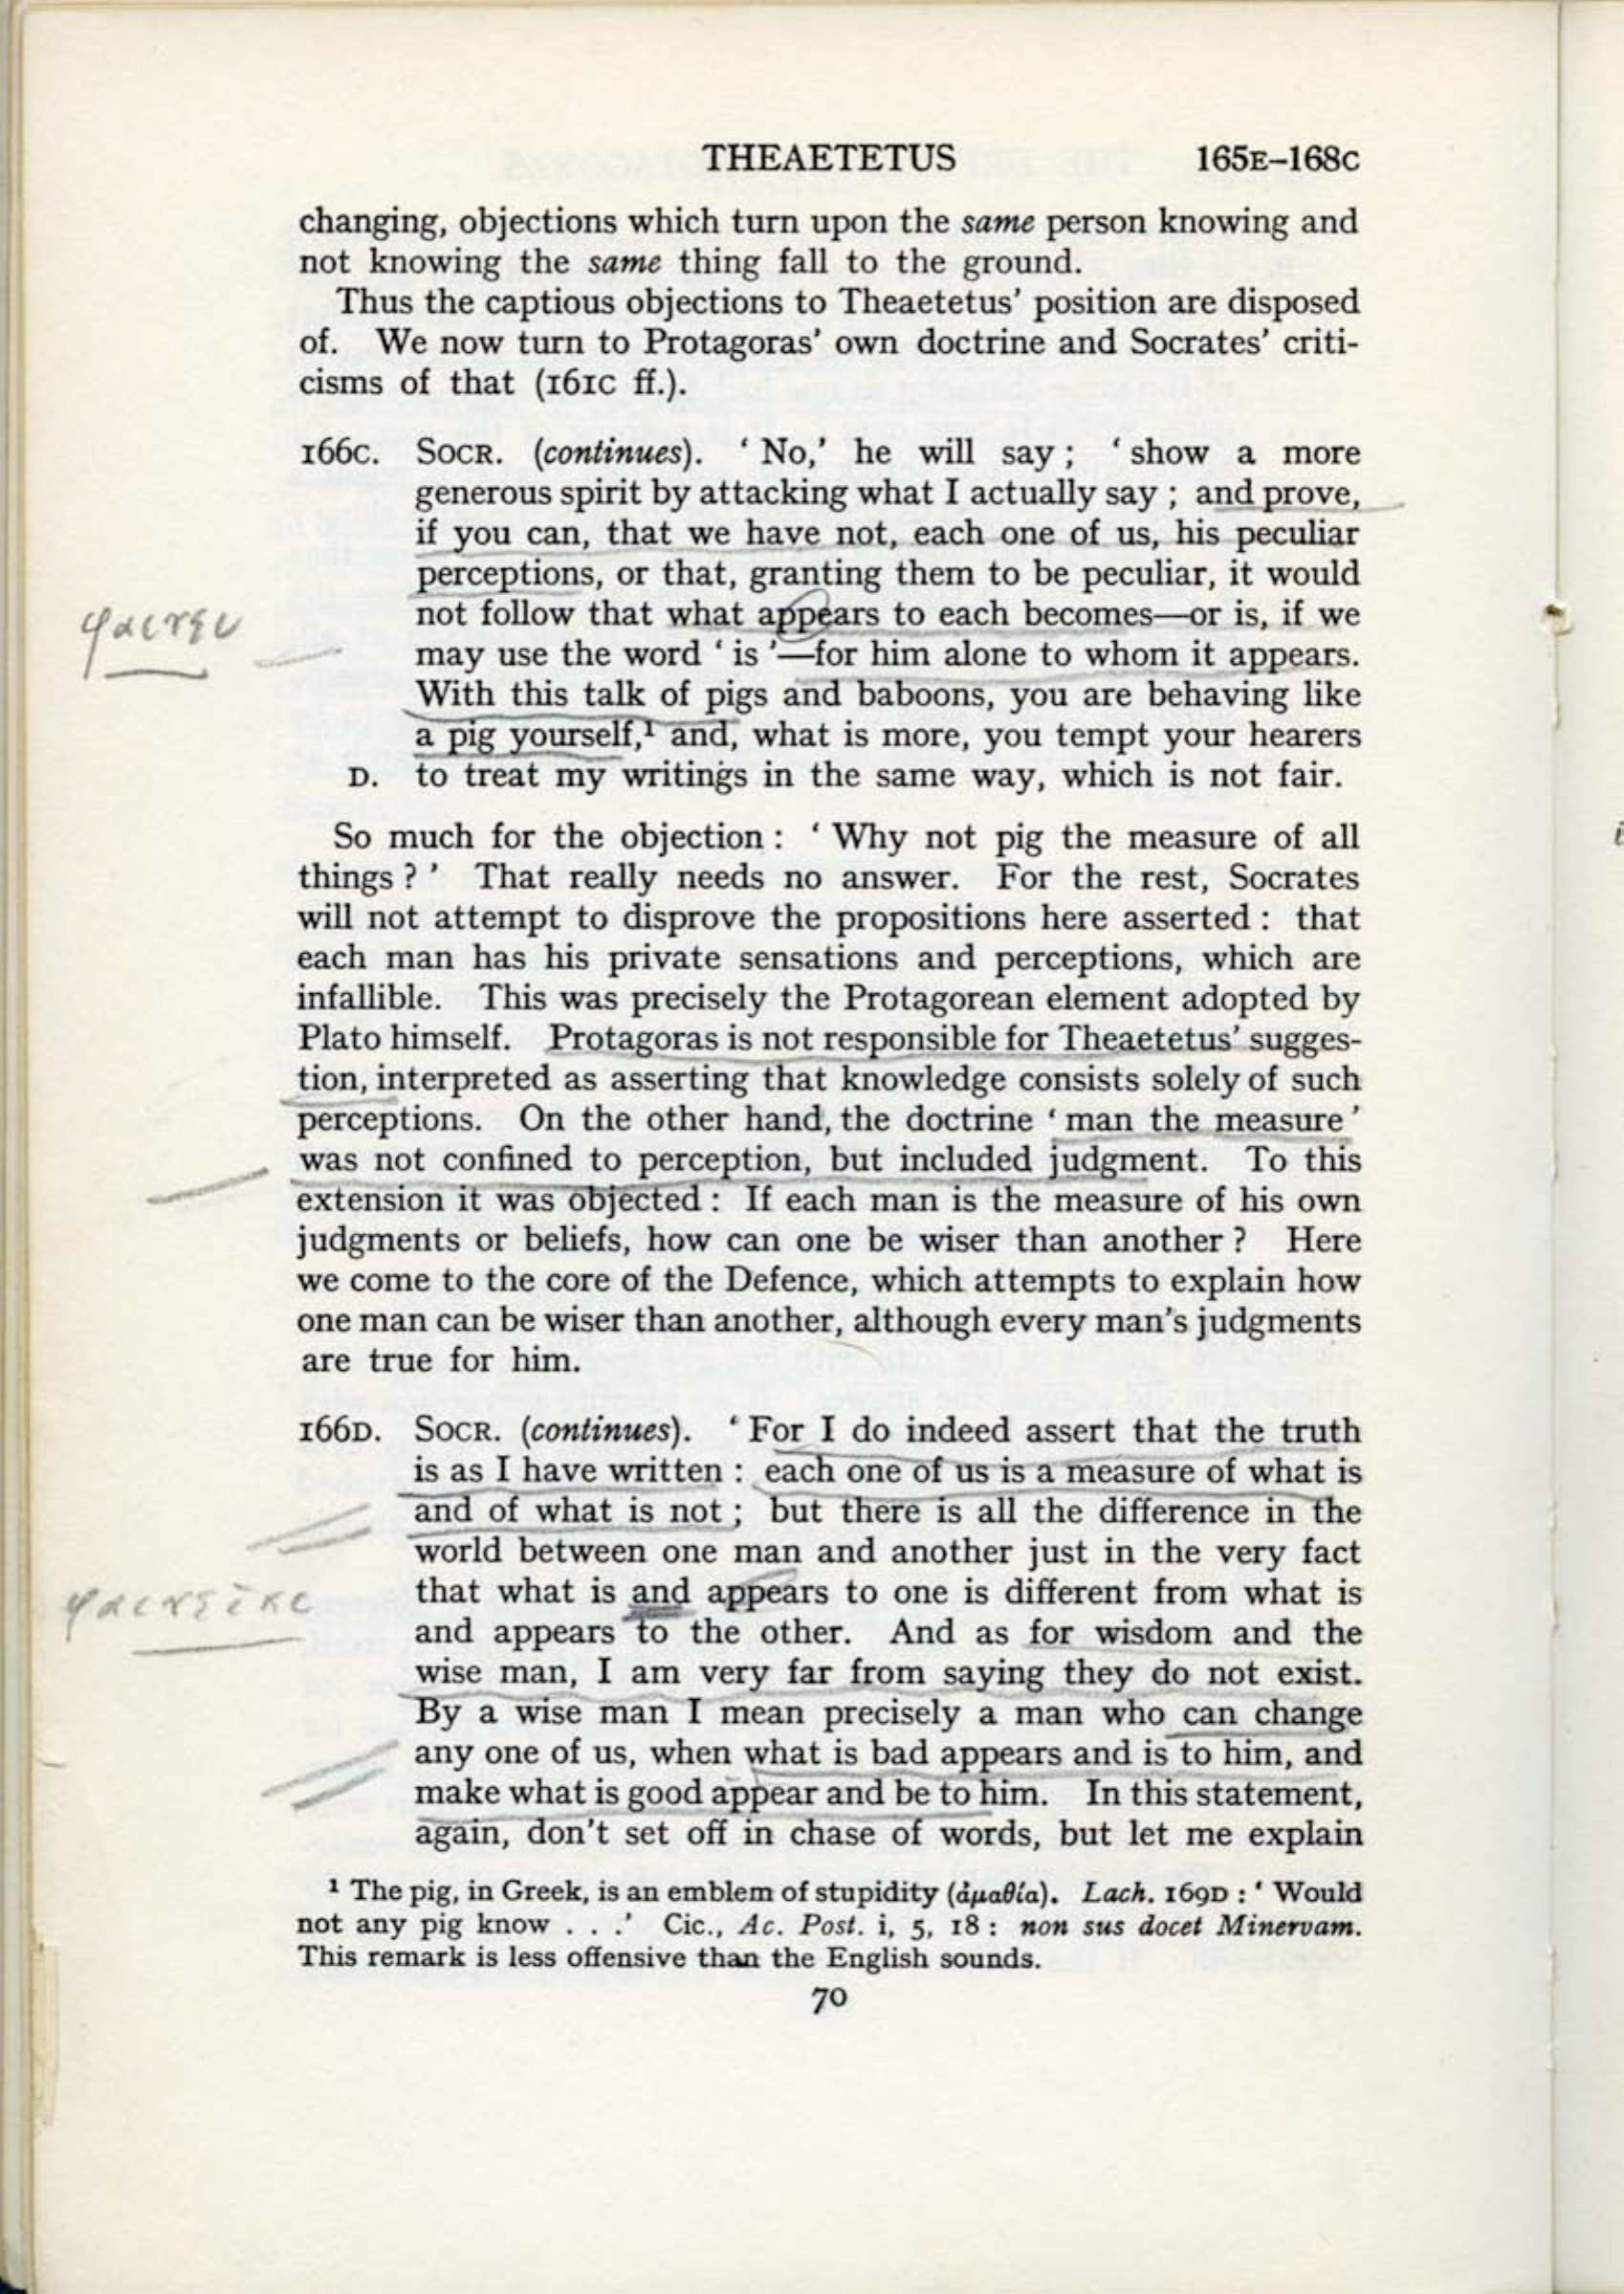 THEAETETUS 165E–168C
changing, objections which turn upon the same person knowing and
not knowing the same thing fall to the ground.
Thus the captious objections to Theaetetus’ position are disposed
of. We now turn to Protagoras’ own doctrine and Socrates’ criti-
cisms of that (161C ff.).
166C. SOCR. (continues). ‘ No,’ he will say ; ‘ show a more
generous spirit by attacking what I actually say ; and prove,
if you can, that we have not, each one of us, his peculiar
perceptions, or that, granting them to be peculiar, it would
not follow that what appears to each becomes—or is, if we
may use the word ‘ is ’—for him alone to whom it appears.
With this talk of pigs and baboons, you are behaving like
a pig yourself,¹ and, what is more, you tempt your hearers
D. to treat my writings in the same way, which is not fair.
So much for the objection : ‘ Why not pig the measure of all
things ? ’ That really needs no answer. For the rest, Socrates
will not attempt to disprove the propositions here asserted : that
each man has his private sensations and perceptions, which are
infallible. This was precisely the Protagorean element adopted by
Plato himself. Protagoras is not responsible for Theaetetus’ sugges-
tion, interpreted as asserting that knowledge consists solely of such
perceptions. On the other hand, the doctrine ‘ man the measure ’
was not confined to perception, but included judgment. To this
extension it was objected : If each man is the measure of his own
judgments or beliefs, how can one be wiser than another ? Here
we come to the core of the Defence, which attempts to explain how
one man can be wiser than another, although every man’s judgments
are true for him.
166D. SOCR. (continues). ‘ For I do indeed assert that the truth
is as I have written : each one of us is a measure of what is
and of what is not ; but there is all the difference in the
world between one man and another just in the very fact
that what is and appears to one is different from what is
and appears to the other. And as for wisdom and the
wise man, I am very far from saying they do not exist.
By a wise man I mean precisely a man who can change
any one of us, when what is bad appears and is to him, and
make what is good appear and be to him. In this statement,
again, don’t set off in chase of words, but let me explain
¹ The pig, in Greek, is an emblem of stupidity (ἀμαθία). Lach. 169D : ‘ Would
not any pig know . . .’ Cic., Ac. Post. i, 5, 18 : non sus docet Minervam.
This remark is less offensive than the English sounds.
70